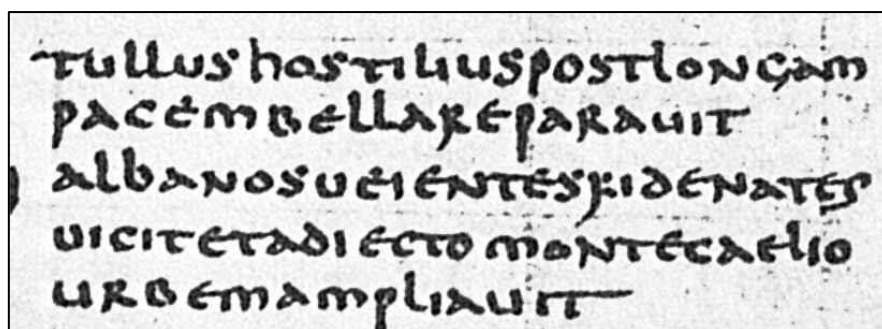 tullushostiliuspostlongam
pacembellareparauit
albanosueientesfidenates
uicitetadiectomontecaelio
urbemampliauit